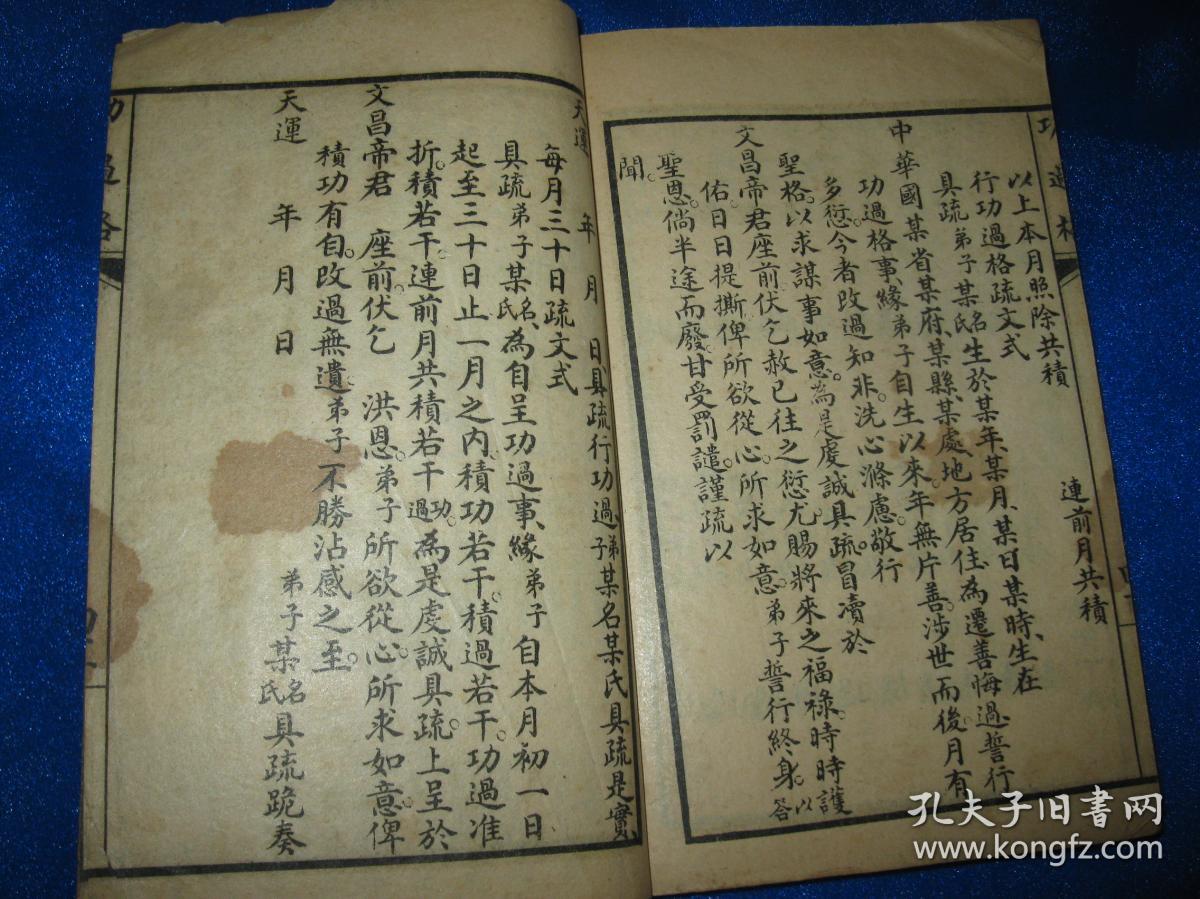 以上本月照除共積　　連前月共積
行功過格疏文式
具疏弟子某名氏生於某年、某月、某日某時、生在
中華國某省某府、某縣、某處、地方居住、為遷善悔過、誓行
功過格事、緣弟子自生以來、年無片善、涉世而後、月有
多愆、今者改過知非、洗心滌慮、敬行
聖格、以求謀事如意、為是虔誠具疏、冒瀆於
文昌帝君座前、伏乞赦已往之愆尤、賜將來之福祿、時時護
佑、日日提撕、俾所欲從心、所求如意、弟子誓行終身、以答
聖恩、倘半途而廢、甘受罰譴、謹疏以
聞。
天運　年　月　日、具疏行功過弟子某名某氏具疏是實
每月三十日疏文式
具疏弟子某名氏、為自呈功過事、緣弟子自本月初一日
起至三十日止一月之內、積功若干、積過若干、功過準
折、積若干、連前月共積若干功過、為是虔誠具疏、上呈於
文昌帝君　座前、伏乞　洪恩、弟子所欲從心、所求如意、俾
積功有自、改過無遺、弟子不勝沾感之至。
天運　年　月　日　弟子某名氏具疏跪奏
功過格
功過格
孔夫子旧書网
www.kongfz.com